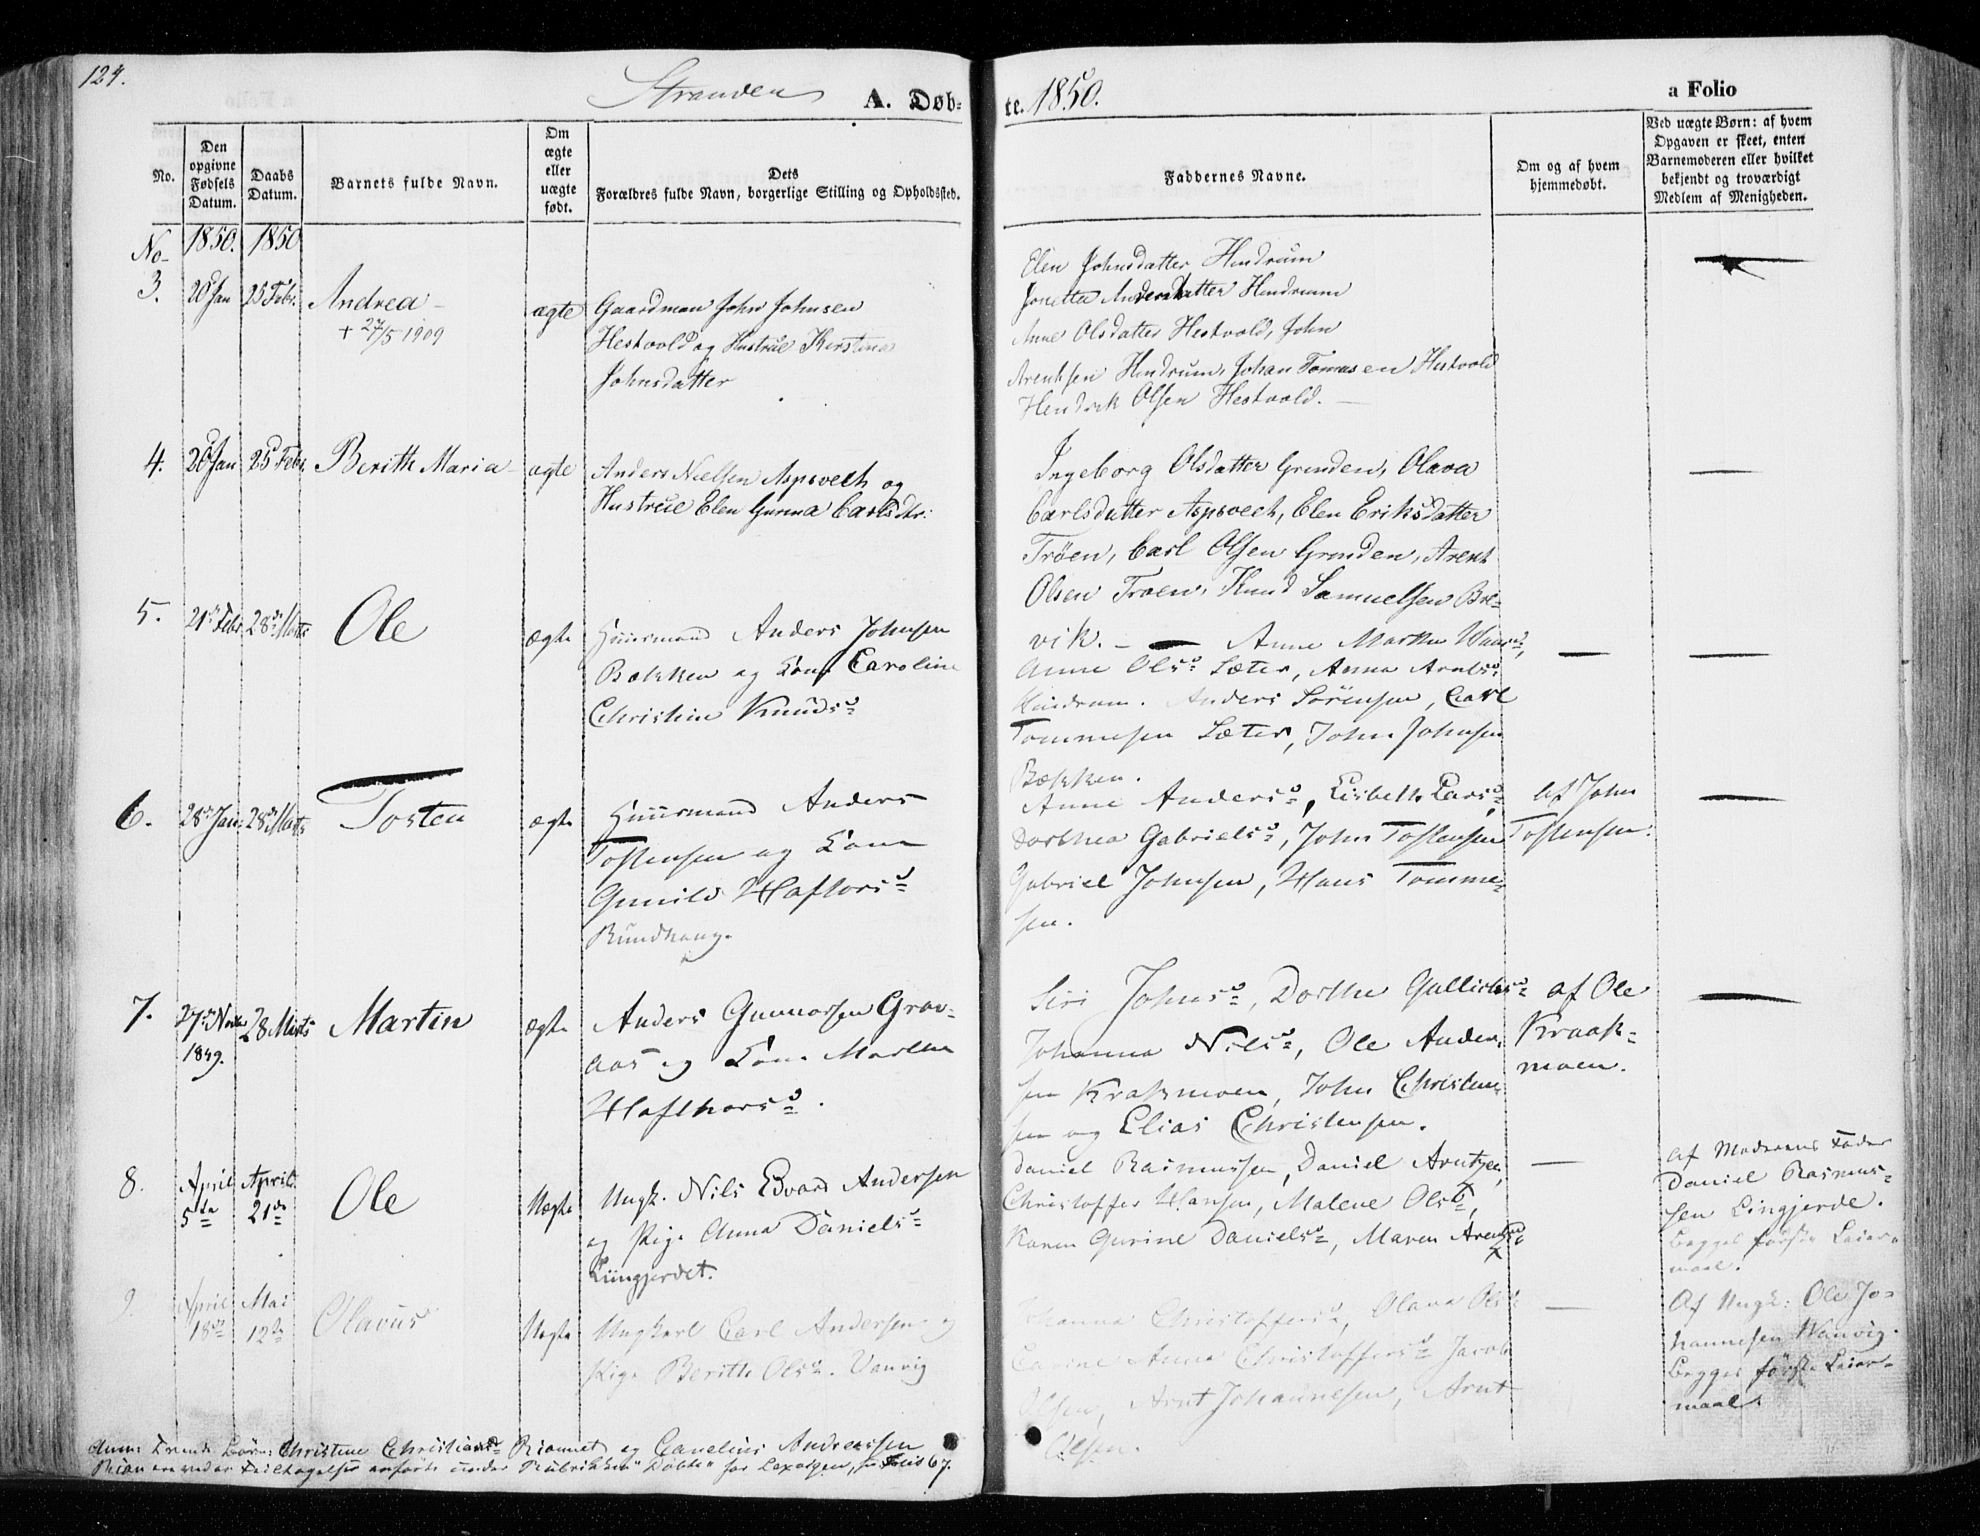 124.
Stranden A. Døb-
te. 1850. a Folio
No.
Den opgivne Fødsels Datum.
Daabs Datum.
Barnets fulde Navn.
Om ægte eller uægte født.
Dets
Forældres fulde Navn, borgerlige Stilling og Opholdssted.
Faddernes Navne.
Om og af hvem hjemmedøbt.
Ved uægte Børn: af hvem Opgaven er skeet, enten Barnemoderen eller hvilket bekjendt og troværdigt Medlem af Menigheden.
No- 1850. 1850
3. 20 Jan 25 Febr. Andrea - ægte Gaardman John Johnsen
+ 27/5 1909
Hestvold og Hustrue Kirstina
Johnsdatter
Elen Johnsdatter Hindrum
Jonetta Andersdatter Hindrum
Anne Olsdatter Hestvold, John
Arentsen Hindrum, Johan Tomasen Hestvold
Hendrik Olsen Hestvold. —
4. 20 Jan 25 Febr. Berith Maria - ægte Anders Nielsen Aspsveth og
Hustrue Elen Gurina Carlsdtr:
Ingeborg Olsdatter Grinden, Olava
Carlsdatter Aspsveet, Elen Eriksdatter
Trøen, Carl Olsen Grinden, Arent
Olsen Trøen, Knud Samuelsen Bre-
vik. -
5. 21 Febr. 28 Marts Ole ægte Huusmand Anders Johnsen
Bækken og Kone Caroline
Christine Knuds
Anne Martha
Anne Ols Sæter, Anna Arnts
Hindrum. Anders Sörensen, Carl
Tommesen Sæter, John Johnsen
Bækken.
6. 28 Jan: 28 Marts Tosten ægte Huusmand Anders
Tostensen og Kone
Gunild Haftors
Rundhaug.
Anne Anders, Lisbeth Lars,
Dorthea Gabriels, John Tostensen
Gabriel Johnsen, Hans Tomme-
sen.
af John
Tostensen.
7. 27 Novbr 1849. 28 Marts Martin ægte Anders Gunnarsen Grav-
aas og Kone Marthe
Hafthors.
Siri Johns, Dorthe
Johanna Nils, Ole Ander-
sen Krakmoen, John Christen-
sen og Elias Christensen.
af Ole
Kraak-
moen.
8. April 5te April 21de Ole Uægte Ungk. Nils Edvard Andersen
og Pige Anna Daniels
Liingjerdet.
Daniel Rasmussen, Daniel Arntzen,
Christoffer Hansen, Malene Ols,
Karen Gurine Daniels, Maren Arents
af Moderens Fader
Daniel Rasmus-
sen Lingjerde.
Begges første Leier-
maal.
9. April 18de Mai 12te Olavus Uægte Ungkarl Carl Andersen og
Pige Berith Ols. Vanvig
Johanna Christoffers, Olava Ols
Carine Anna Christoffers Jacob
Olsen, Arnt Johannesen, Arnt
Olsen.
Af Ungk: Ole Jo-
hannesen Wanvig.
Begges første Leier-
maal.
Anm: Christine Christians og Canelius Andreassen
ere under anførte under Rubrikken "Døbte" for Lexvigen, Folio 67.